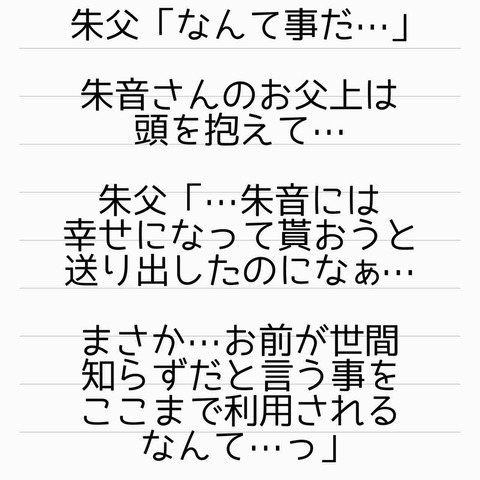 朱父「なんて事だ…」
朱音さんのお父上は
頭を抱えて…
朱父「…朱音には
幸せになって貰おうと
送り出したのになぁ…
まさか…お前が世間
知らずだと言う事を
ここまで利用される
なんて…っ」